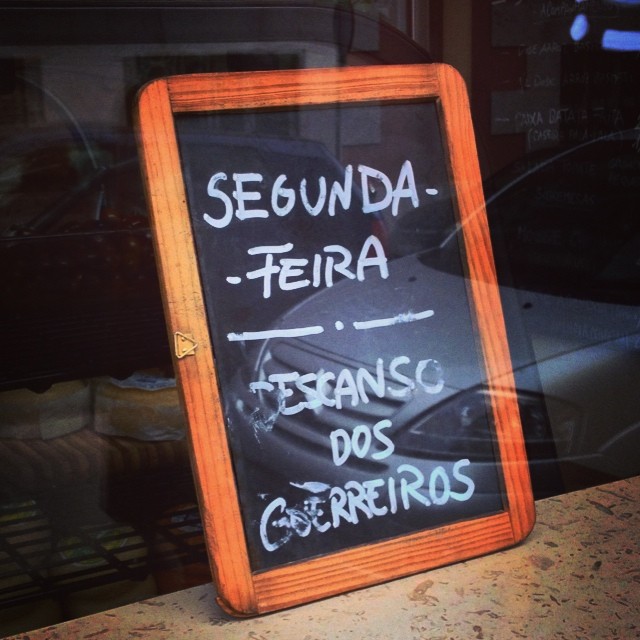 SEGUNDA-
-FEIRA
DESCANSO
DOS
GUERREIROS